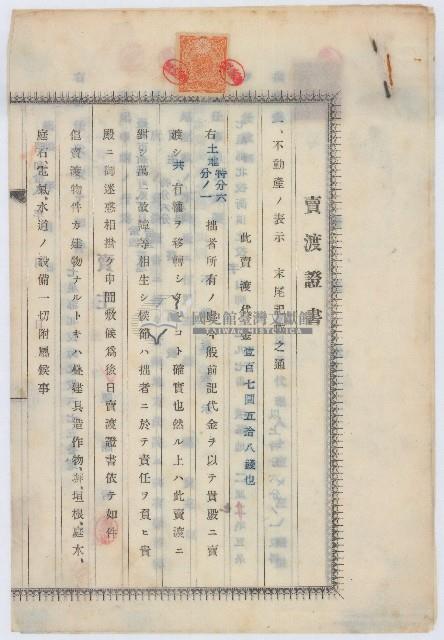 賣渡證書
一、不動産ノ表示 末尾記載之通
此賣渡代金壹百七圓五拾八錢也
右土地持分六分ノ一 拙者所有ノ處今般前記代金ヲ以テ貴殿ニ賣
渡シ共有權ヲ移轉シタルコト確實也然ル上ハ此賣渡ニ
對シ萬一故障等相生シ候節ハ拙者ニ於テ責任ヲ負ヒ貴
殿ニ御迷惑相掛ケ申間敷候爲後日賣渡證書依テ如件
但賣渡物件カ建物ナルトキハ疊建具造作物、塀、垣根、庭木、
庭石、電氣、水道ノ設備一切附屬候事
國史館臺灣文獻館
TAIWAN HISTORICA